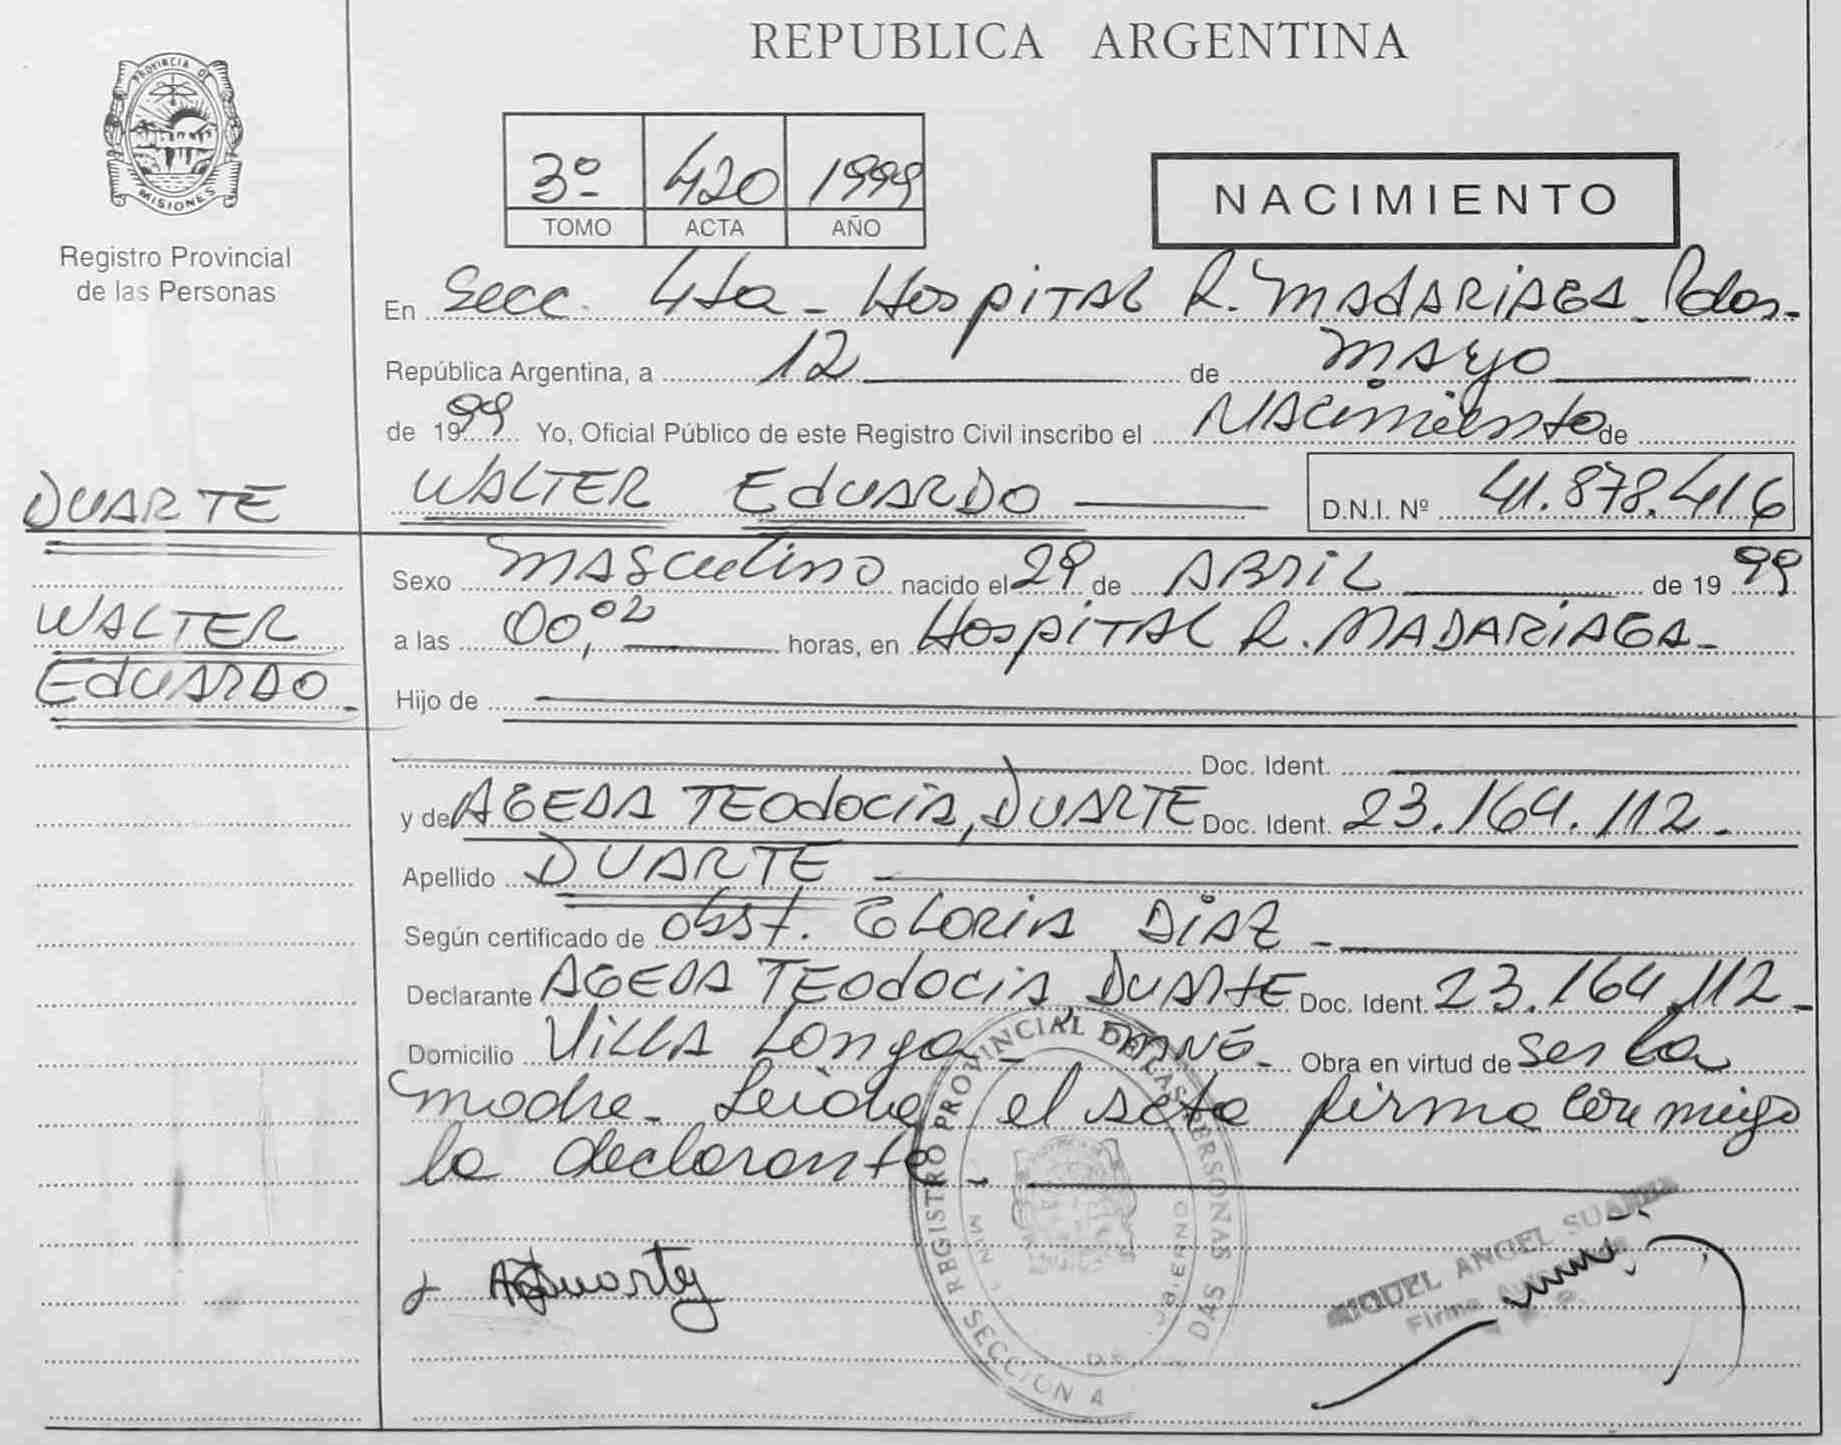 REPUBLICA ARGENTINA
PROVINCIA DE
MISIONES
Registro Provincial
de las Personas
3º 420 1999
TOMO ACTA AÑO
NACIMIENTO
En Secc. 4ta - Hospital R. Madariaga - Pdas.
República Argentina, a 12 de mayo
de 1999 Yo, Oficial Público de este Registro Civil inscribo el Nacimiento de
WALTER EDUARDO D.N.I. Nº 41.878.416
DUARTE
WALTER
EDUARDO
Sexo masculino nacido el 29 de ABRIL de 1999
a las 00,02 horas, en Hospital R. MADARIAGA -
Hijo de
Doc. Ident.
y de AGEDA TEODOCIA, DUARTE Doc. Ident. 23.164.112 -
Apellido DUARTE
Según certificado de obst. GLORIA DIAZ -
Declarante AGEDA TEODOCIA DUARTE Doc. Ident. 23.164.112 -
Domicilio Villa Longa - Obra en virtud de ser la
madre - Leída el acta firma conmigo
la declarante.
REGISTRO PROVINCIAL DE LAS PERSONAS
SECCION
MIGUEL ANGEL SUAREZ
Firma